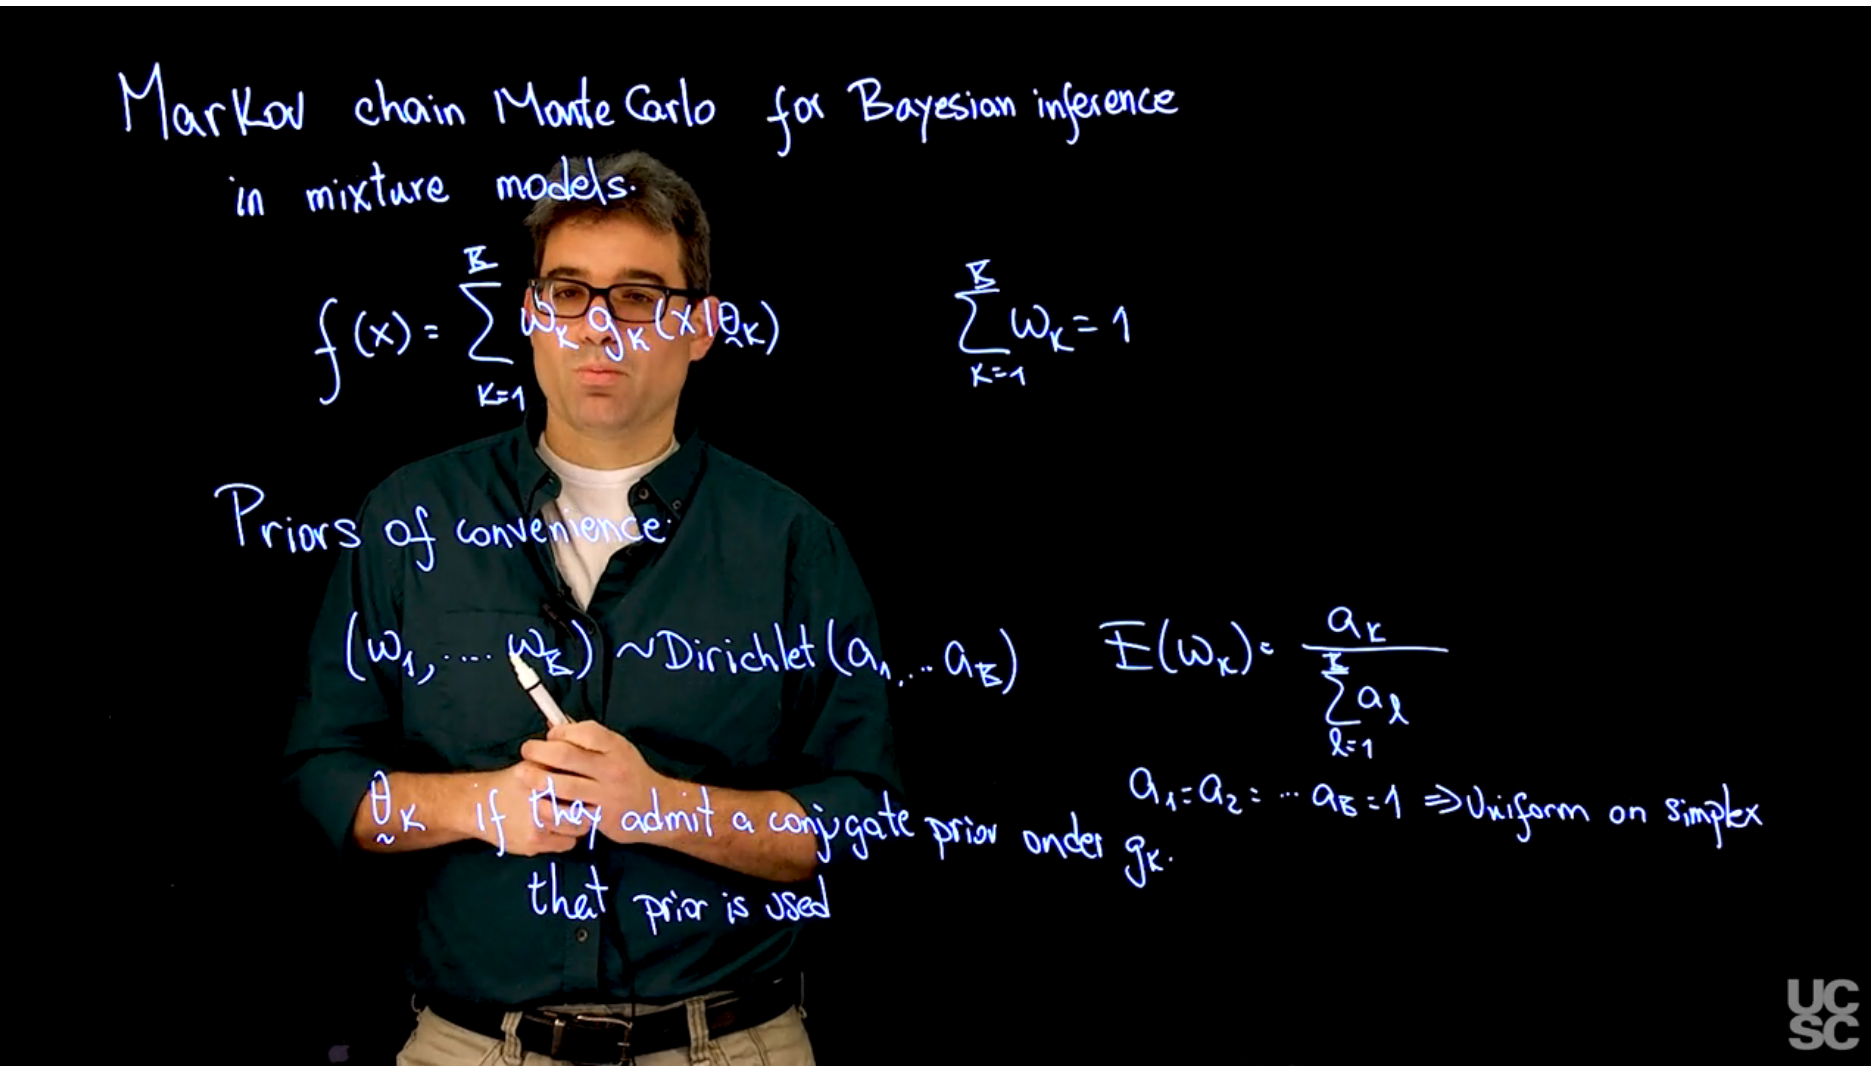 Markov chain Monte Carlo for Bayesian inference
in mixture models.
f(x) = \sum_{k=1}^{K} ω_k g_k(x|θ_k)    \sum_{k=1}^{K} ω_k = 1
Priors of convenience:
(ω_1, .... ω_K) ~ Dirichlet(a_1, .. a_K)    E(ω_k) = \frac{a_k}{\sum_{l=1}^{K} a_l}
a_1 = a_2 = ... a_K = 1 ⇒ Uniform on simplex
θ_k if they admit a conjugate prior under g_k.
that prior is used
UC
SC